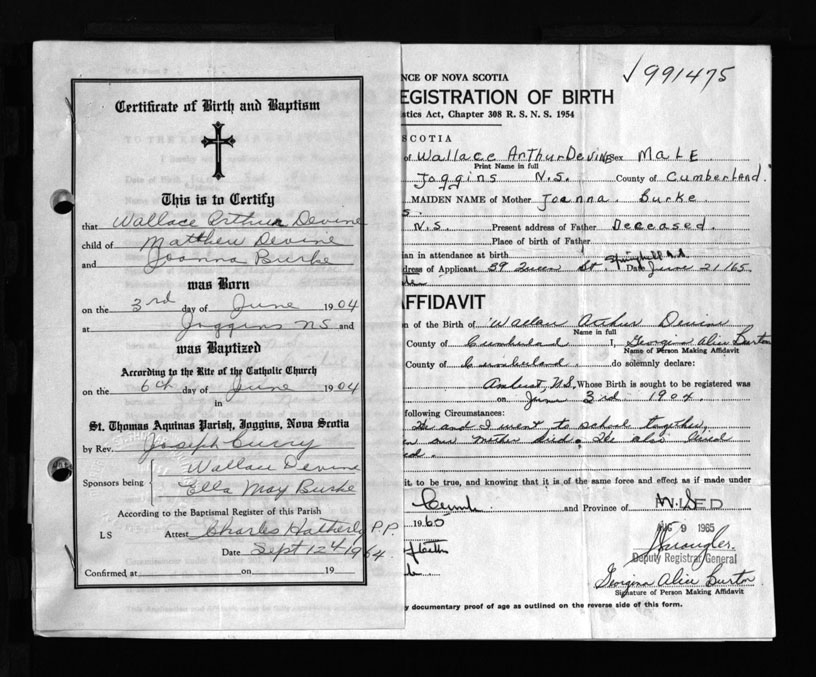 Certificate of Birth and Baptism
This is to Certify
that Wallace Arthur Devine
child of Matthew Devine
and Joanna Burke
was Born
on the 3rd day of June 1904
at Joggins NS and
was Baptized
According to the Rite of the Catholic Church
on the 6th day of June 1904
in
St. Thomas Aquinas Parish, Joggins, Nova Scotia
by Rev. Joseph Curry
Sponsors being Wallace Devine
Ella May Burke
According to the Baptismal Register of this Parish
LS Attest Charles Hatherly P.P.
Date Sept 12th 1964
Confirmed at on 19
√991475
NCE OF NOVA SCOTIA
EGISTRATION OF BIRTH
stics Act, Chapter 308 R. S. N. S. 1954
SCOTIA
of Wallace Arthur Devine Sex MALE
Print Name in full
Joggins N.S. County of Cumberland.
MAIDEN NAME of Mother Joanna. Burke
S.
N.S. Present address of Father Deceased.
Place of birth of Father
ian in attendance at birth
dress of Applicant 89 Queen St. Springhill N.S. Date June 21/65.
AFFIDAVIT
n of the Birth of Wallace Arthur Devine
Name in full
County of Cumberland I, Georgina Alice Burton
Name of Person Making Affidavit
County of Cumberland. do solemnly declare:
Amherst, N.S. Whose Birth is sought to be registered was
on June 3rd 1904.
following Circumstances:
He and I went to school together,
en our mother died. He also lived
ed.
it to be true, and knowing that is of the same force and effect as if made under
Cumb and Province of N.S.
FILED
1965
AUG 9 1965
Deputy Registrar General
Georgina Alice Burton
Signature of Person Making Affidavit
y documentary proof of age as outlined on the reverse side of this form.